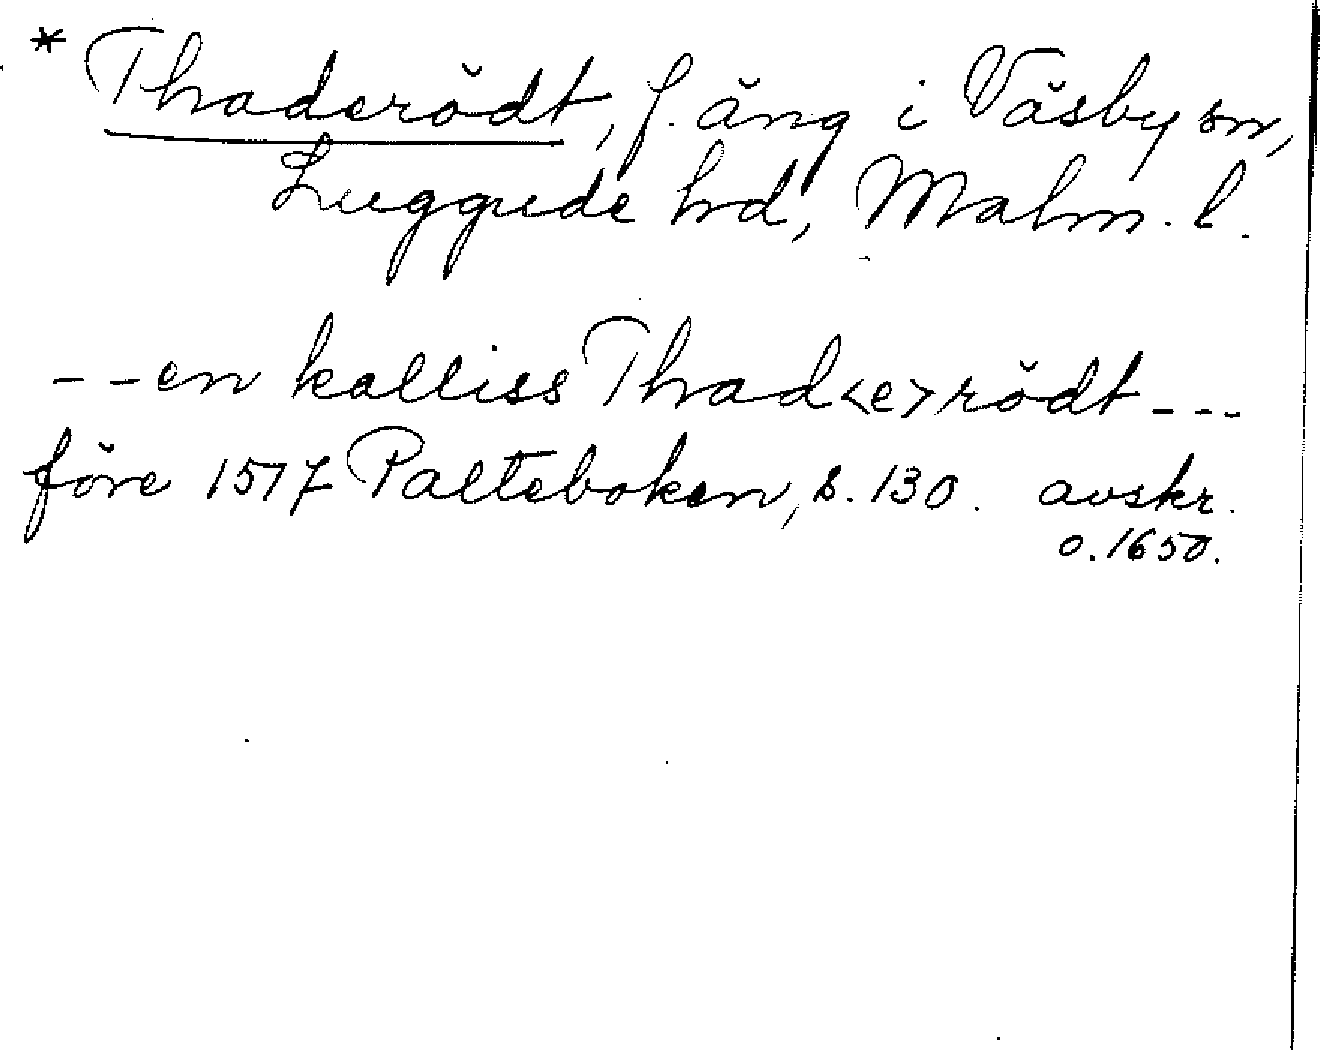 * Thaderödt, f. äng i Väsby sn,
Luggude hd, Malm. l.
- - en kalliss Thad<e>rödt - - -
före 1517 Palteboken, s. 130. avskr.
o. 1650.